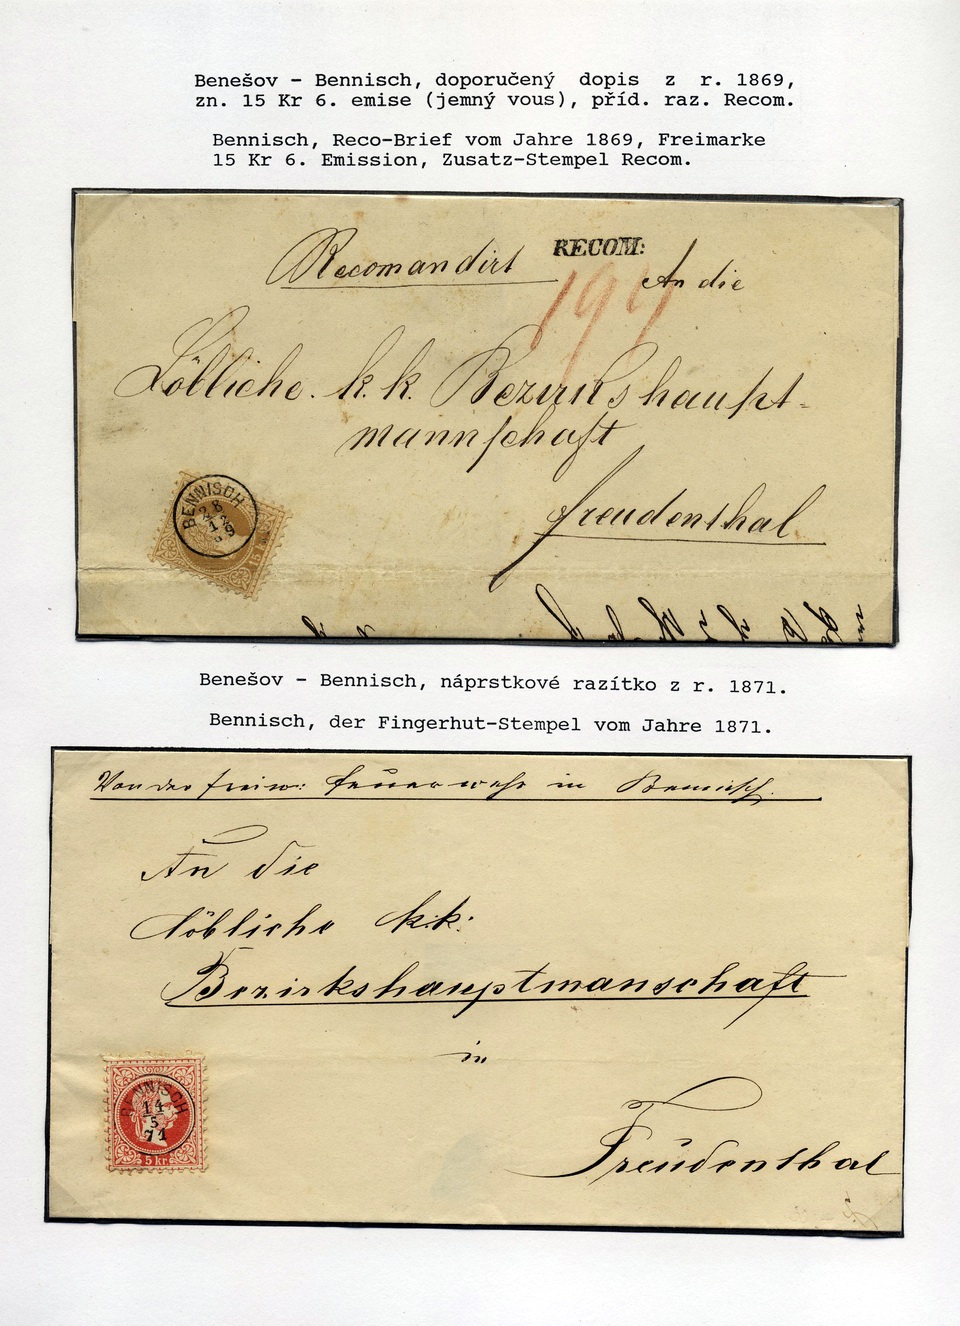 Benešov - Bennisch, doporučený dopis z r. 1869,
zn. 15 Kr 6. emise (jemný vous), příd. raz. Recom.
Bennisch, Reco-Brief vom Jahre 1869, Freimarke
15 Kr 6. Emission, Zusatz-Stempel Recom.
Recomandirt RECOM:
An die
Löbliche. k. k. Bezirkshaupt-
mannschaft
Freudenthal
BENNISCH
28
12
69
15
Benešov - Bennisch, náprstkové razítko z r. 1871.
Bennisch, der Fingerhut-Stempel vom Jahre 1871.
Von der freiw: Feuerwehr in Bennisch.
An die
Löbliche k.k:
Bezirkshauptmanschaft
in
Freudenthal
BENNISCH
14
5
71
5 kr